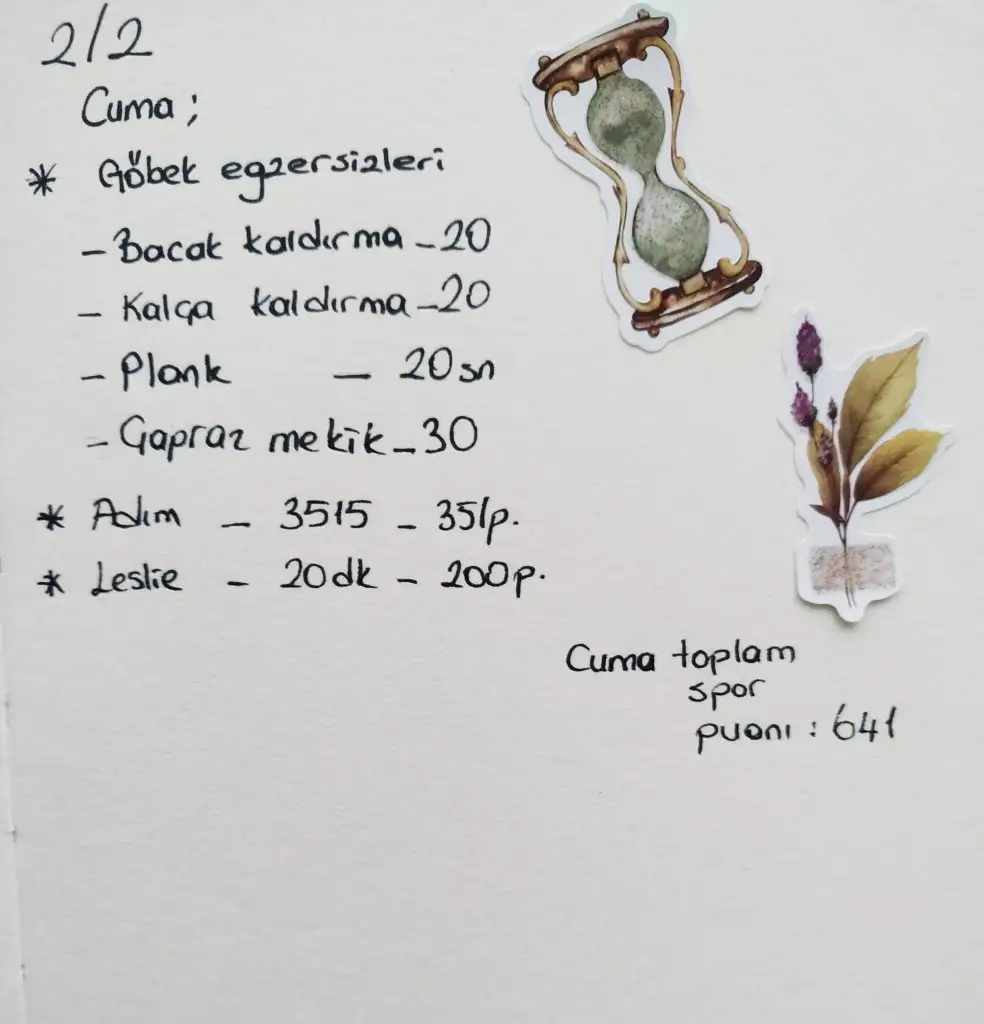 2/2
Cuma ;
* Göbek egzersizleri
- Bacak kaldırma - 20
- Kalça kaldırma - 20
- Plank - 20 sn
- Çapraz mekik - 30
* Adım - 3515 - 351p.
* Leslie - 20dk - 200p.
Cuma toplam
spor
puanı : 641